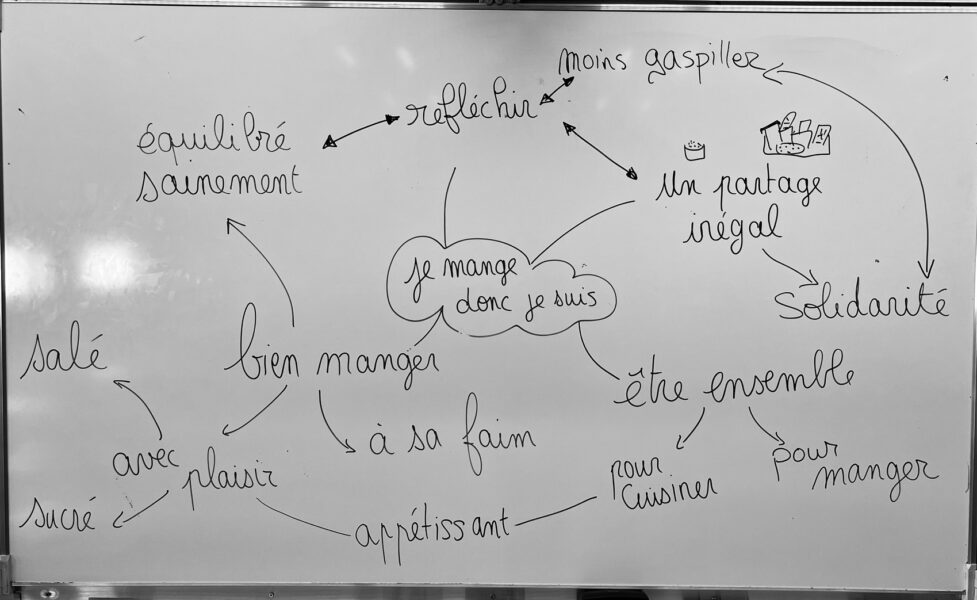 moins gaspiller
refléchir
équilibré
sainement
un partage
irégal
je mange
donc je suis
Solidarité
salé
bien manger
être ensemble
à sa faim
avec
plaisir
pour
cuisiner
pour
manger
sucré
appétissant